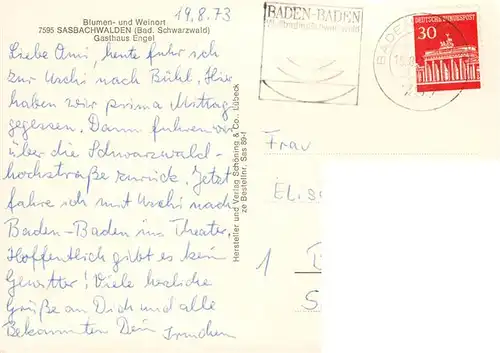 Blumen- und Weinort
7595 SASBACHWALDEN (Bad. Schwarzwald)
Gasthaus Engel
19.8.73
Liebe Omi, heute fuhr ich
zur Uschi nach Bühl. Hier
haben wir prima Mittag
gegessen. Dann fuhren wir
über die Schwarzwald-
hochstraße zurück. Jetzt
fahre ich mit Uschi nach
Baden-Baden ins Theater.
Hoffentlich gibt es kein
Gewitter! Viele herzliche
Grüße an Dich und alle
Bekannten Dein
Hersteller und Verlag Schöning & Co., Lübeck
Bestellnr. Sas 89-f
BADEN-BADEN
DEUTSCHE BUNDESPOST
30
BADE
Frau
1